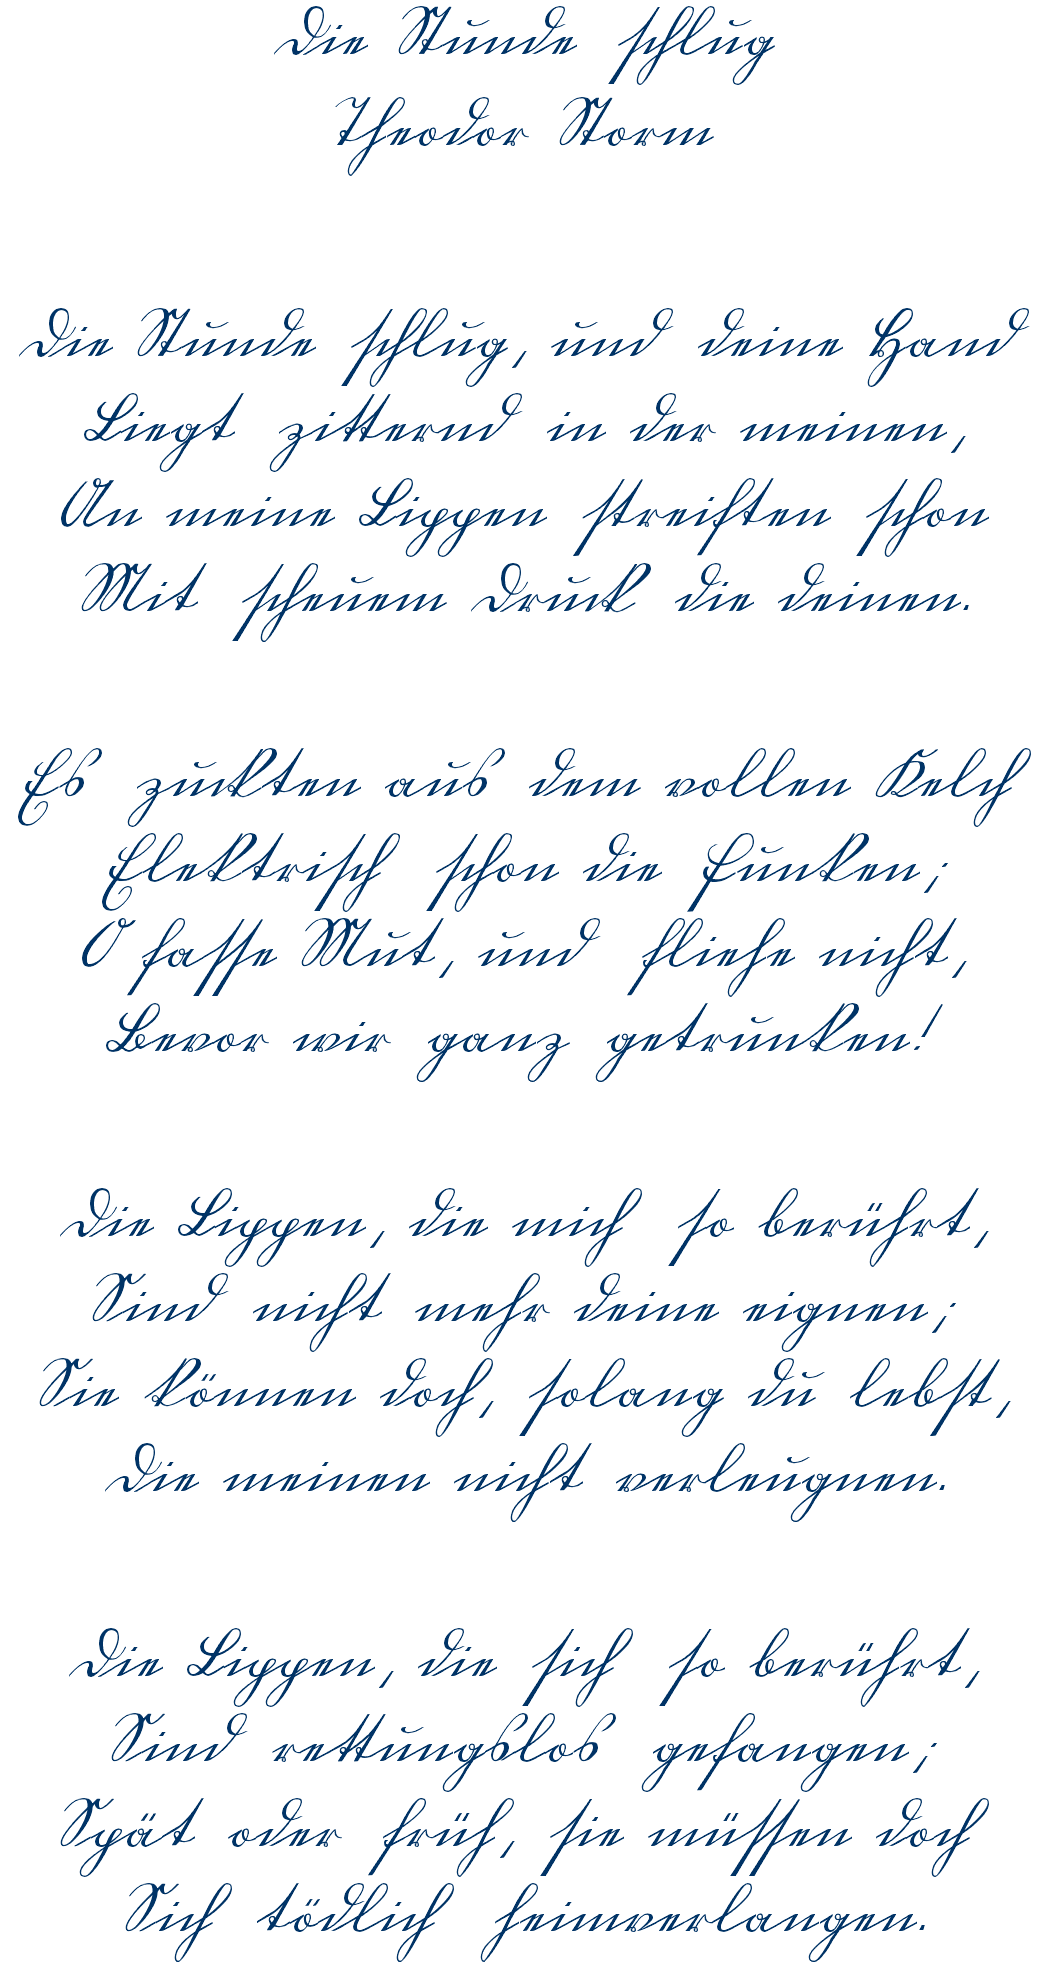 Die Stunde schlug
Theodor Storm
Die Stunde schlug, und deine Hand
Liegt zitternd in der meinen,
An meine Lippen streiften schon
Mit scheuem Druck die deinen.
Es zuckten aus dem vollen Kelch
Elektrisch schon die Funken;
O fasse Mut, und fliehe nicht,
Bevor wir ganz getrunken!
Die Lippen, die mich so berührt,
Sind nicht mehr deine eignen;
Sie können doch, solang du lebst,
Die meinen nicht verleugnen.
Die Lippen, die sich so berührt,
Sind rettungslos gefangen;
Spät oder früh, sie müssen doch
Sich tödlich heimverlangen.